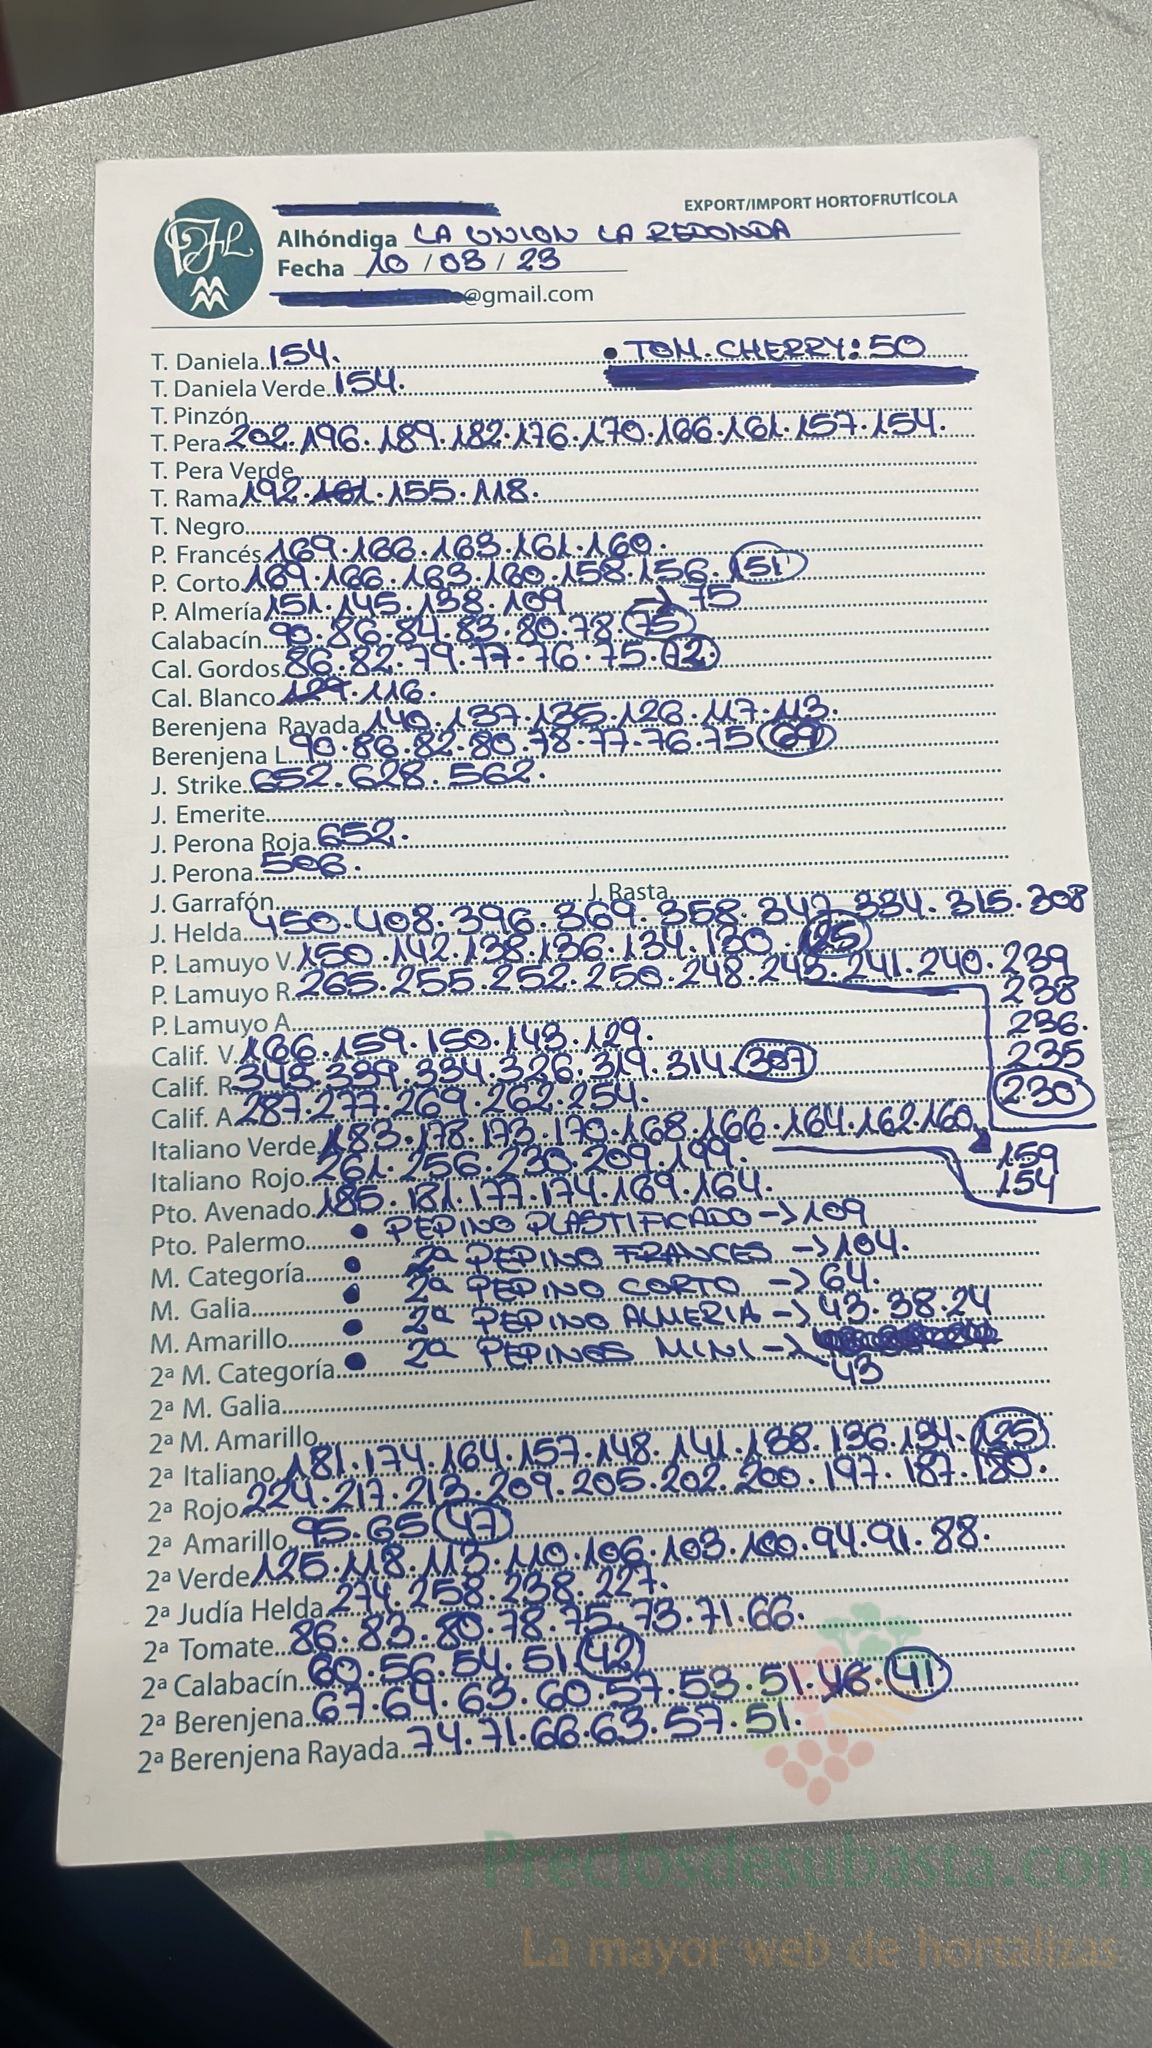 EXPORT/IMPORT HORTOFRUTÍCOLA
Alhóndiga LA UNION LA REDONDA
Fecha 10 / 03 / 23
@gmail.com
T. Daniela 154. • TOM. CHERRY: 50
T. Daniela Verde 154.
T. Pinzón
T. Pera 202. 196. 189. 182. 176. 170. 166. 161. 157. 154.
T. Pera Verde
T. Rama 192. 161. 155. 118.
T. Negro
P. Francés 169. 166. 163. 161. 160.
P. Corto 169. 166. 163. 160. 158. 156. 151
P. Almería 151. 145. 138. 109 -> 75
Calabacín 90. 86. 84. 83. 80. 78. 75
Cal. Gordos 86. 82. 79. 77. 76. 75. 72.
Cal. Blanco 129. 116.
Berenjena Rayada 140. 137. 135. 126. 117. 113.
Berenjena L. 90. 86. 82. 80. 78. 77. 76. 75 69
J. Strike 652. 628. 562.
J. Emerite
J. Perona Roja 652.
J. Perona 506.
J. Garrafón J. Rasta
J. Helda 450. 408. 396. 369. 358. 347. 334. 315. 308
P. Lamuyo V. 150. 142. 138. 136. 134. 130. 125
P. Lamuyo R. 265. 255. 252. 250. 248. 243. 241. 240. 239
238
P. Lamuyo A.
236.
Calif. V. 166. 159. 150. 143. 129.
235
Calif. R. 343. 339. 334. 326. 319. 314. 307
230
Calif. A 287. 277. 269. 262. 254.
Italiano Verde 183. 178. 173. 170. 168. 166. 164. 162. 160.
159
Italiano Rojo 261. 256. 230. 209. 199.
154
Pto. Avenado 185. 181. 177. 174. 169. 164.
Pto. Palermo • PEPINO PLASTIFICADO -> 109
M. Categoría • 2ª PEPINO FRANCES -> 104.
M. Galia • 2ª PEPINO CORTO -> 64.
M. Amarillo • 2ª PEPINO ALMERIA -> 43. 38. 24
2ª M. Categoría • 2ª PEPINOS MINI ->
43
2ª M. Galia
2ª M. Amarillo
2ª Italiano 181. 174. 164. 157. 148. 141. 138. 136. 134. 125
2ª Rojo 224. 217. 213. 209. 205. 202. 200. 197. 187. 180.
2ª Amarillo 95. 65 47
2ª Verde 125. 118. 113. 110. 106. 103. 100. 94. 91. 88.
2ª Judía Helda 274. 258. 238. 227.
2ª Tomate 86. 83. 80. 78. 75. 73. 71. 66.
2ª Calabacín 60. 56. 54. 51. 42
2ª Berenjena 67. 64. 63. 60. 57. 53. 51. 46. 41
2ª Berenjena Rayada 74. 71. 66. 63. 57. 51.
Preciosdesubasta.com
La mayor web de hortalizas